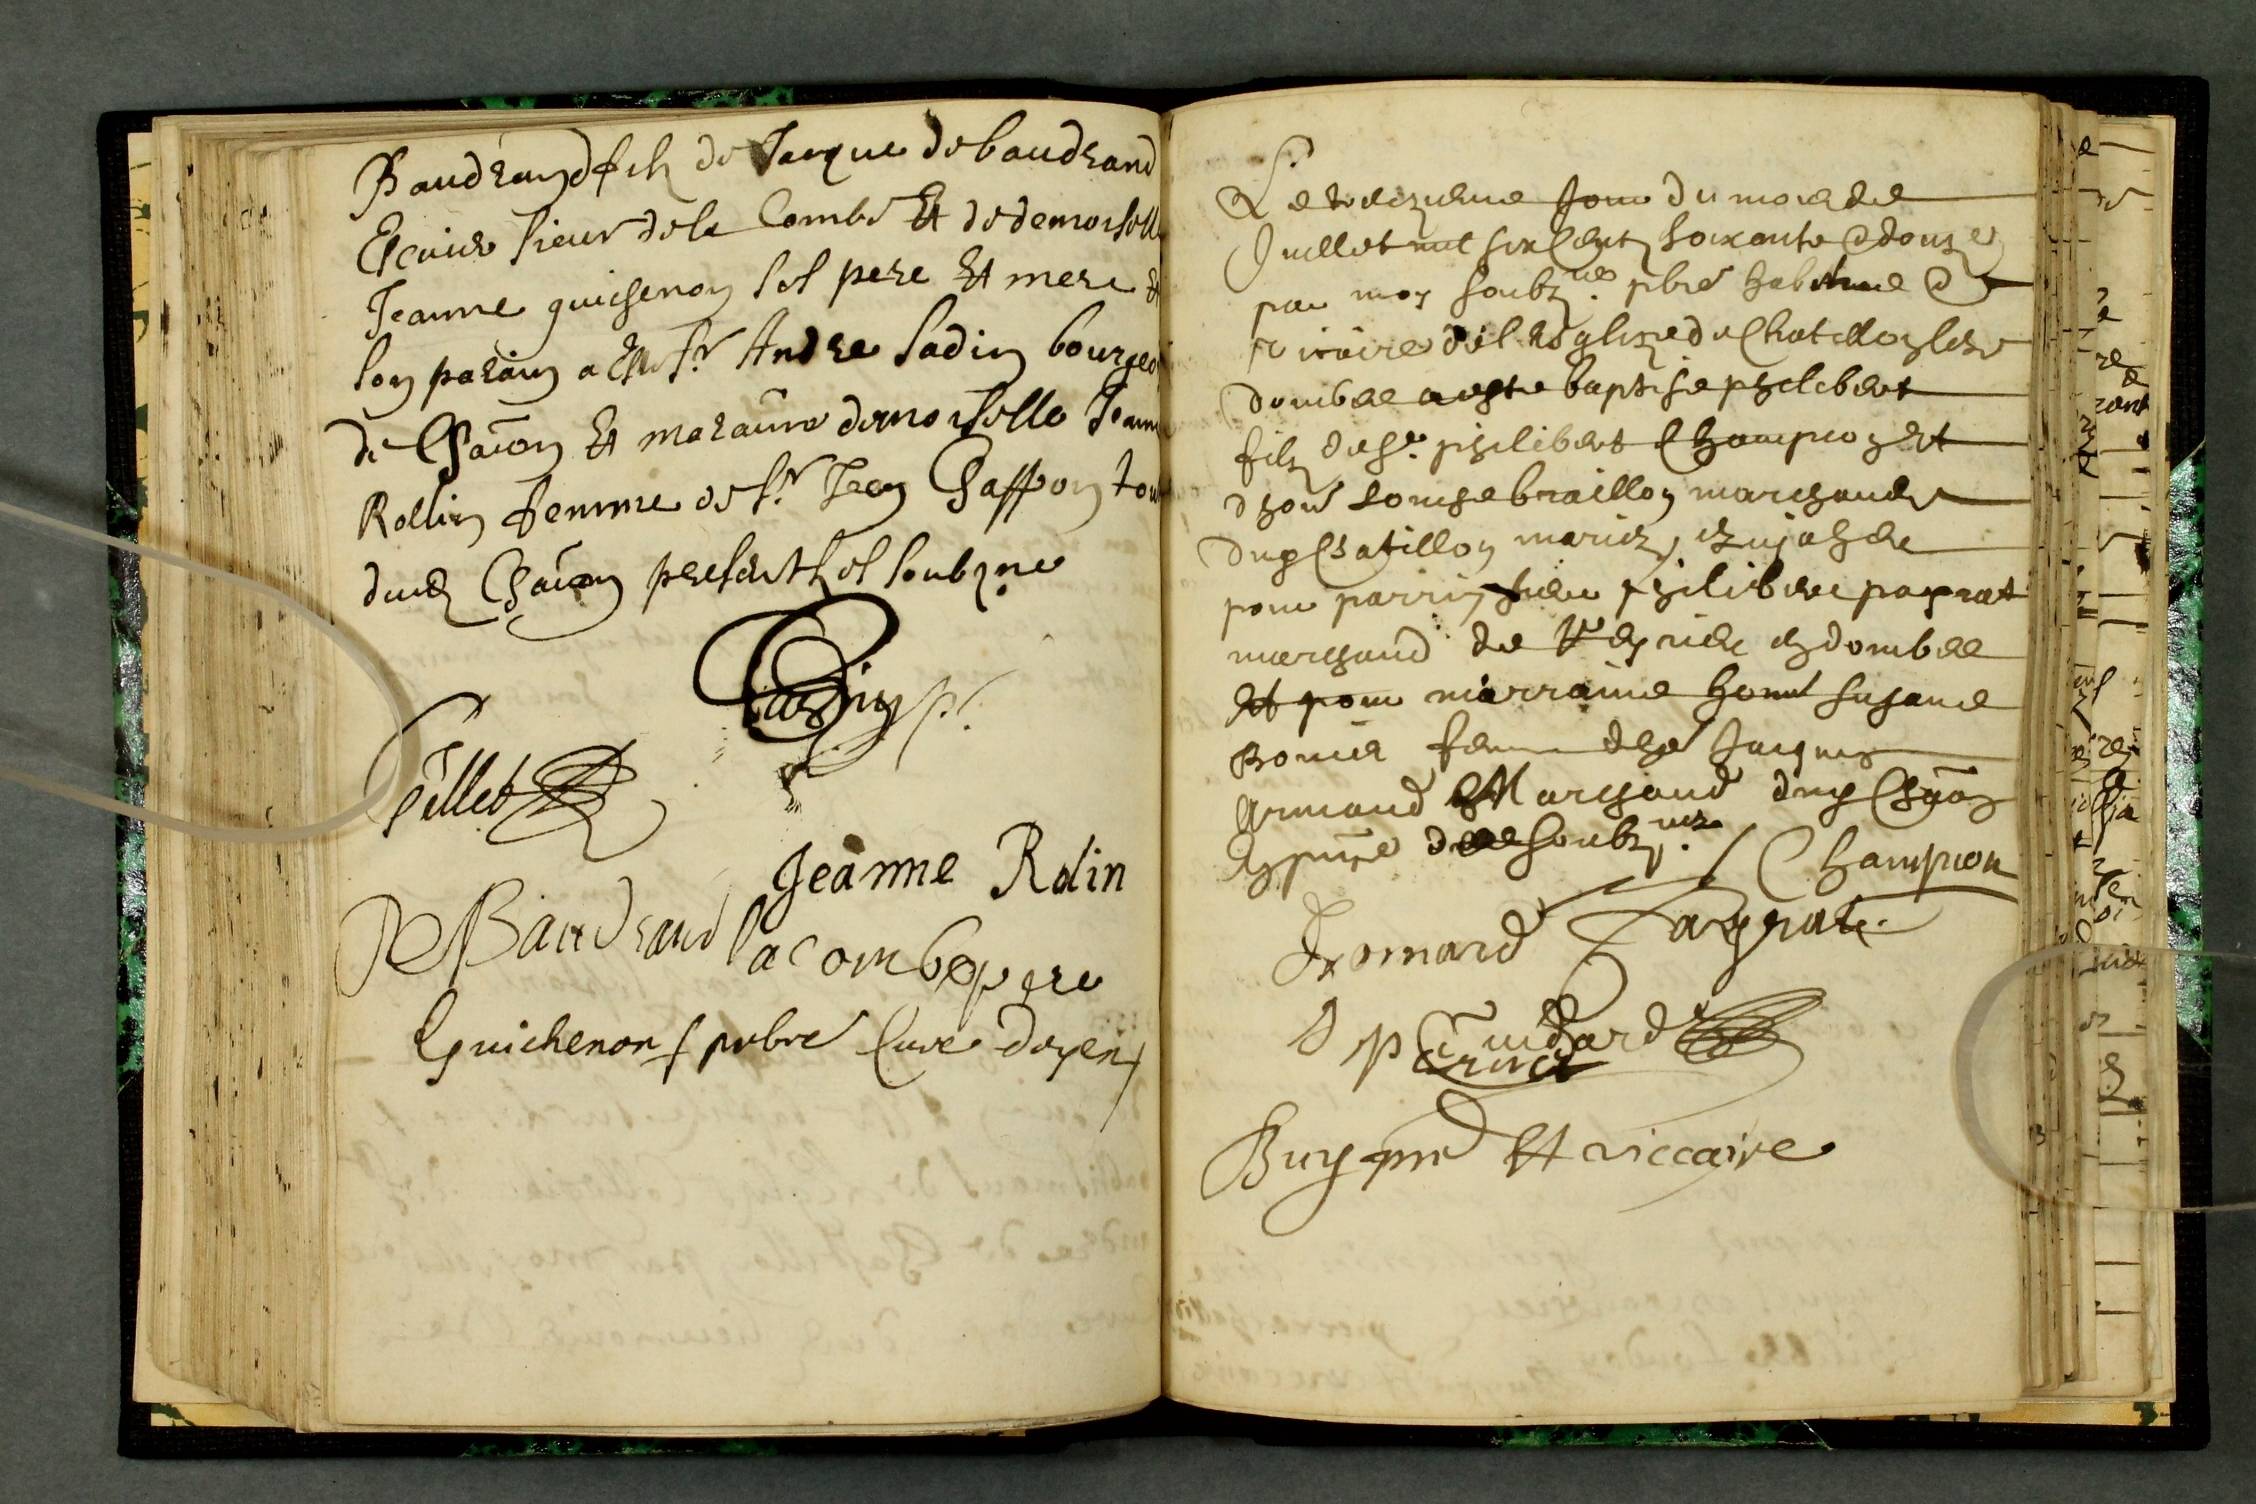 Baudrand filz de Jacque debaudrand
Escuier sieur dela Combe Et de demoisell
Jeanne guichenon ses pere Et mere &
son parain a Esté Sr. Andre Sadin bourgeo
de Chaōn Et maraine demoiselle Jeann
Rollin femme de Sr. Jean Chaffon tou
dud Chaōn presents et soubzne
Sadin
pillet
Jeanne Rolin
De Baudrand lacombe pere
Guichenon pnbre Cure doyen
Le treiziesme Jour du mois de
Juillet mil six Centz soixante & douze
par moy soubzne. pbre habitue &
vicaire de l'esglize de Chatillon lesr
dombes a este baptise philibert
filz de sr. philibert Champion Et
dhon Louise braillon marchandz
dug Chatillon mariez, Et ujahde
pour parrin sieur philibert paprat
marchand de en dombes
et pour marraine hon susane
Bonier femme de sr Jacques
Armand Marchand dug Chāon
En pnce des soubznez
Champion
Fromard Paprat
Guichard
Buy pre Et viccaire